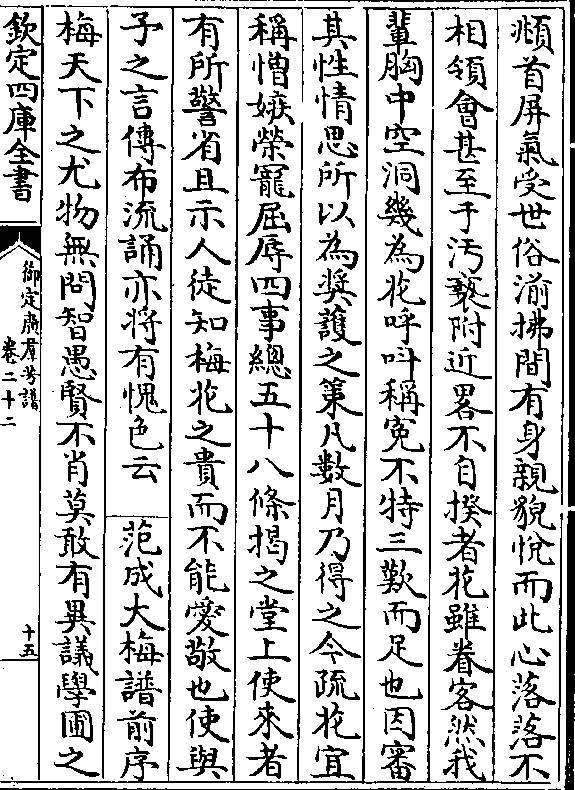 頫首屏氣受世俗湔拂間有身親貌悅而此心落落不
相領會甚至于汚褻附近畧不自揆者花雖眷客然我
輩胸中空洞幾為花呼叫稱寃不特三歎而足也因審
其性情思所以為奬護之策凡數月乃得之今疏花宜
稱憎嫉榮寵屈辱四事總五十八條揭之堂上使來者
有所警省且示人徒知梅花之貴而不能愛敬也使與
予之言傳布流誦亦將有愧色云 范成大梅譜前序
梅天下之尤物無問智愚賢不肖莫敢有異議學圃之
欽定四庫全書
御定廣羣芳譜
卷二十二
十五